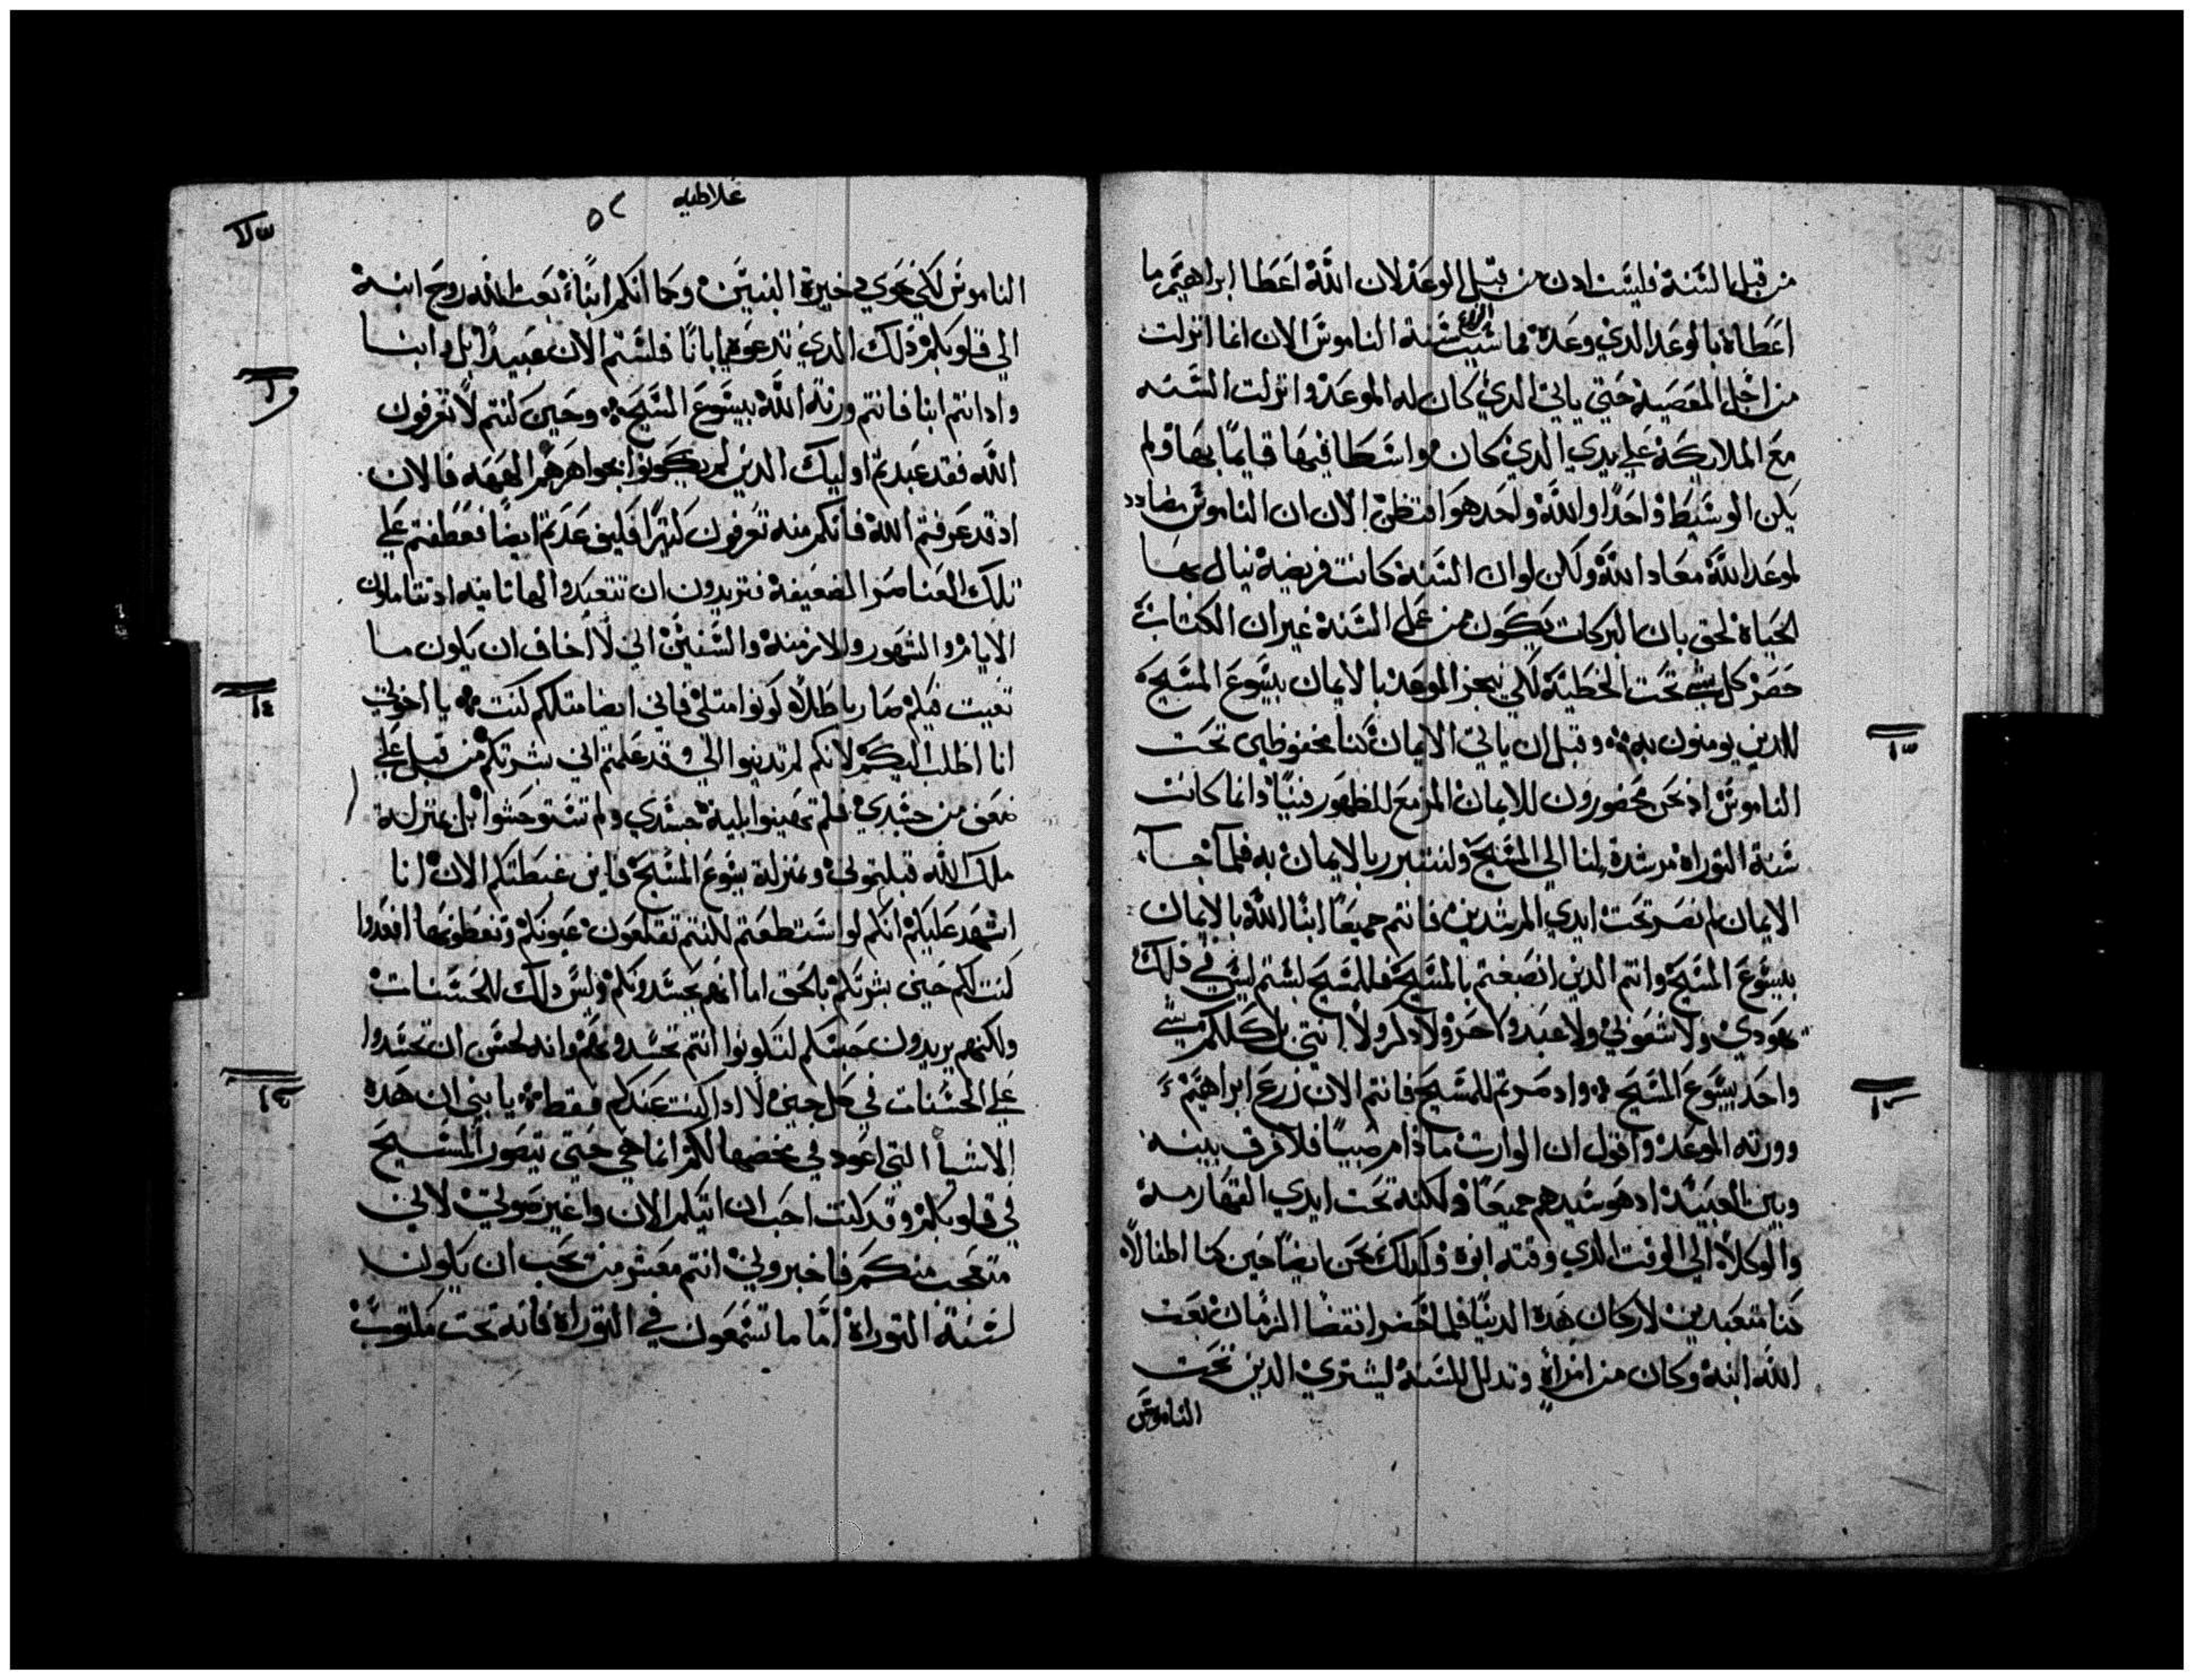 من قبل السنة فليست ادن من قبل الوعد لان الله اعطا ابراهيم ما
اعطاه بالوعد الدي وعده فما سبب سنة الناموس الان انما انزلت
من اجل المعصية حتي ياتي الدي كان له الموعد وانزلت السنه
مع الملايكة علي يدي الدي كان واسطا فيها قايما بها ولم
يكن الوسيط واحدا والله واحد هو افتظن الان ان الناموس مضادد
لوعد الله معاد الله ولكن لو ان السنة كانت فريضة ينال بها
الحياة لحق بان البركات تكون من عمل السنة غير ان الكتاب
حصر كل شي تحت الخطية لكي ينجز الموعد بالايمان بيسوع المسيح
للدين يومنون به وقبل ان ياتي الايمان كنا محفوظين تحت
الناموس اد نحن محصورون للايمان المزمع للظهور فينا وانما كانت
سنة التوراة مرشدة لنا الي المسيح ولنتبرر بالايمان به فلما جا
الايمان لم نصر تحت ايدي المرشدين فانتم جميعا ابنا الله بالايمان
بيسوع المسيح وانتم الدين انصبغتم بالمسيح فللمسيح لبستم ليس في دلك
يهودي ولا شعوبي ولا عبد ولا حر ولا دكر ولا انتي بل كلكم شي
واحد بيسوع المسيح واد صرتم للمسيح فانتم الان زرع ابراهيم
وورته الموعد واقول ان الوارت ما دام صبيا فلا فرق بينه
وبين العبيد اد هو سيدهم جميعا ولكنه تحت ايدي القهارمة
والوكلا الي الوقت الدي وقته ابوه وكدلك نحن ايضا حين كنا اطفالا
كنا متعبدين لاركان هده الدنيا فلما حضر انقضا الزمان بعت
الله ابنه وكان من امراة وتدلل للسنة ليشتري الدين تحت
الناموس
غلاطيه
الناموس لكي نحوي دخيرة البنين وكما انكم ابنا بعت الله روح ابنه
الي قلوبكم دلك الدي تدعوه يا ابانا فلستم الان عبيدا بل وابنا
واد انتم ابنا فانتم ورتة الله بيسوع المسيح وحين كنتم لا تعرفون
الله فقد عبدتم اوليك الدين لم يكونوا بجواهرهم الهه فالان
اد قد عرفتم الله فانكم منه تعرفون كتيرا فكيف عدتم ايضا فعطفتم علي
تلك العناصر الضعيفة فتريدون ان تتعبدوا لها تانيه اد تتاملون
الايام والشهور والازمنة والسنين اني لا اخاف ان يكون ما
تعبت فيكم صار باطلا كونوا متلي فاني ايضا متلكم كنت يا اخوتي
انا اطلب اليكم لانكم لم تدنبوا الي وقد علمتم اني بشرتكم من قبل علي
ضعف من جسدي فلم تهينوا بلية جسدي ولم تستوحشوا بل بمنزلة
ملك الله قبلتموني وبمنزلة يسوع المسيح فاين غبطتكم الان انا
اشهد عليكم انكم لو استطعتم لكنتم تقلعون عيونكم وتعطونيها افعدوا
كنت لكم حين بشرتكم بالحق اما انهم يحسدونكم وليس دلك للحسنات
ولكنهم يريدون حبسكم لتكونوا انتم تحسدونهم وانه لحسن ان تحسدوا
علي الحسنات في كل حين لا ادا كنت عندكم فقط يا بني ان هده
الاشيا التي اعود في مخضها لكم انما هي حتي يتصور المسيح
في قلوبكم وقد كنت احب ان اتيكم الان واغير صوتي لاني
متعجب منكم فاخبروني انتم معشر من تحب ان يكون
لسنة التوراة اما ما تسمعون في التوراة فانه تحت مكتوب